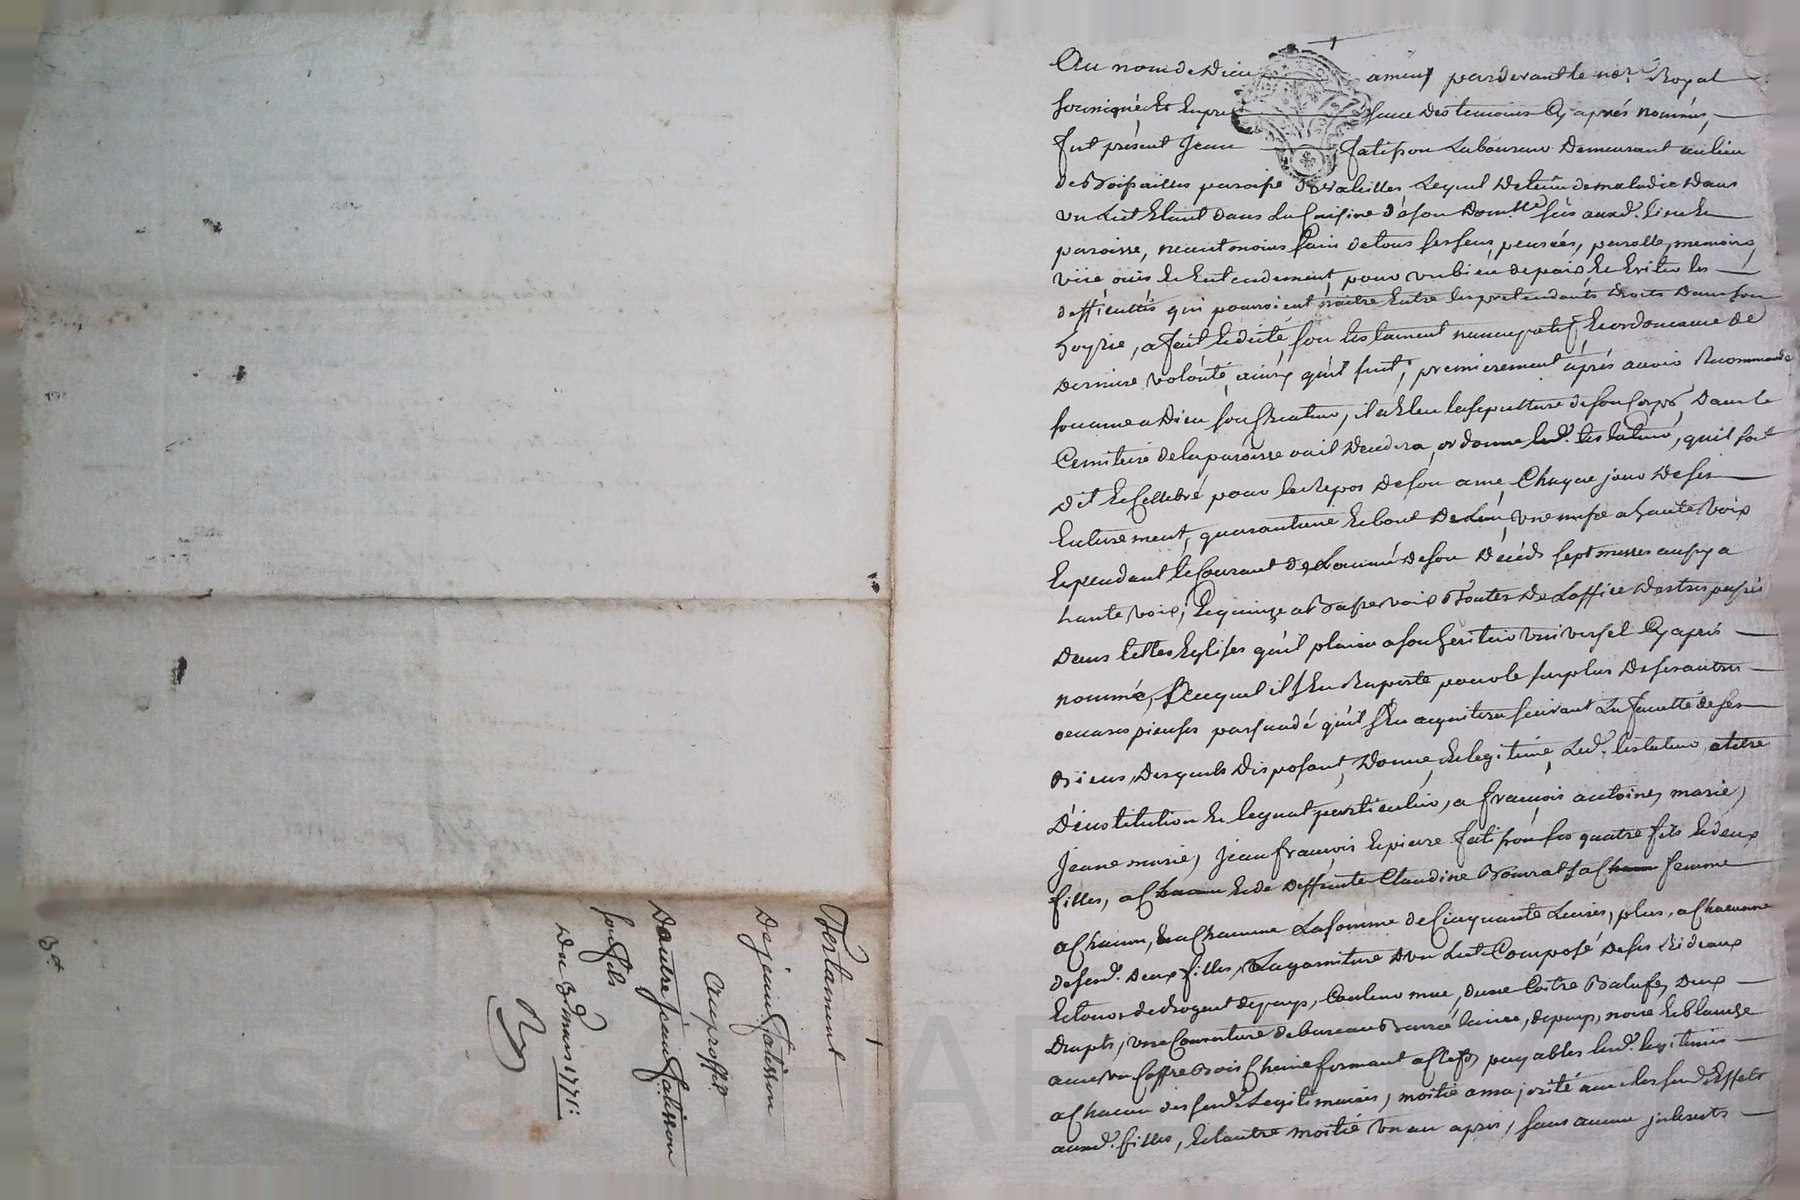 Testament
De jean fatisson
au proffit
D'autre jean fatisson
son fils
Du 3e mars 1771:
3e
Au nom de Dieu amen, pardevant le nore Royal
soussigné et en presence des temoins Cy après nommés,
fut présent Jean fatisson Laboureur Demeurant au lieu
de paroisse de valeilles Lequel Detenu de maladie Dans
un Lict Etant dans La Cuisine de son Domlle sis aud. lieu et
paroisse, neantmoins sain de tous ses sens, pensées, parolle, memoire,
vüe ouïe et Entendement, pour un bien de paix et Eviter les
difficultés qui pouroient naitre Entre les pretendants Droits Dans son
hoyrie, a fait et dicté son testament nuncupatif, et ordonnance de
Derniere volonté, ainsy qu'il suit; premierement après avoir Recommandé
son ame a Dieu son Createur, il a Eleu la sepulture de son Corps, Dans le
Cemitiere de la paroisse ou il Decedera, ordonne led. testateur, qu'il soit
Dit et Cellebré pour le Repos De son ame, Chaque jour De son
Enterrement, quarantaine et bout De L'an, une messe a haute voix
Et pendant le Courant De L'année De son Décéds sept messes aussy a
haute voix, et quinze a Basse voix Toutes De L'office Des trespassés
Dans telles Eglises qu'il plaira a son heritier universel Cy après
nommé, auquel il s'En Raporte pour le surplus De ses autres
oeuvres pieuses persuadé qu'il s'En aquitera suivant La faculté de ses
Biens, Desquels Disposant, Donne, et legitime, Led. testateur a titre
D'institution et legat particulier, a françois antoine, marie,
Jeane marie, Jean françois et pierre fatisson ses quatre fils et deux
filles, a et de Deffunte Claudine sa femme
a Chacun, et a Chacune La somme de Cinquante Livres, plus, a Chacune
de sesd. Deux filles, La garniture D'un Lict Composé De ses Rideaux
et tour de du pays, Couleur mue, d'une Coitre Balufe, Deux
Draps, une Couverture de bureau laine, du pays, noire et blanche
avec un Coffre Bois Chene fermant a Clefs, payables lesd. legitimes
a Chacun desd. Legitimaires, moitié a majorité avec les susd. Effets
auxd. filles, et l'autre moitié un an après, sans aucun interests